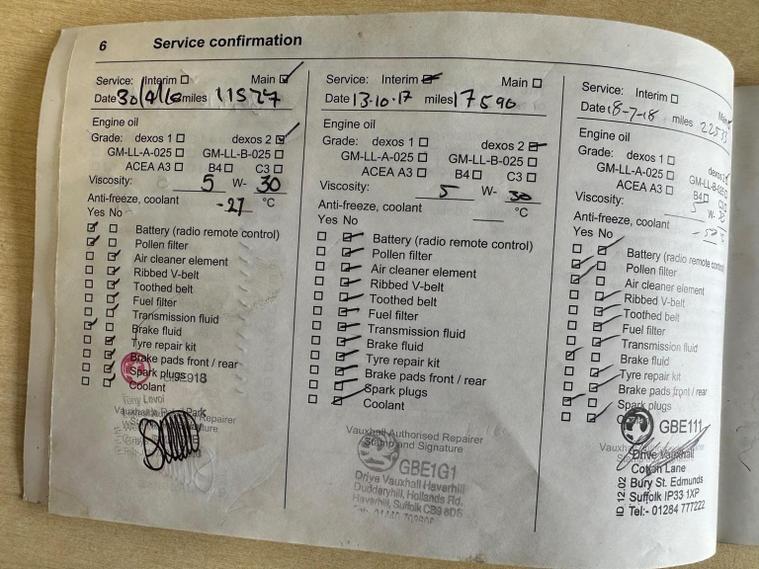 6 Service confirmation
Service: Interim ☐ Main ☑
Date 30/4/16 miles 11527
Engine oil
Grade: dexos 1 ☐ dexos 2 ☑
GM-LL-A-025 ☐ GM-LL-B-025 ☐
ACEA A3 ☐ B4 ☐ C3 ☐
Viscosity: 5 W- 30
Anti-freeze, coolant -27 °C
Yes No
Battery (radio remote control)
Pollen filter
Air cleaner element
Ribbed V-belt
Toothed belt
Fuel filter
Transmission fluid
Brake fluid
Tyre repair kit
Brake pads front / rear
Spark plugs
Coolant
Service: Interim ☑ Main ☐
Date 13-10-17 miles 17590
Engine oil
Grade: dexos 1 ☐ dexos 2 ☑
GM-LL-A-025 ☐ GM-LL-B-025 ☐
ACEA A3 ☐ B4 ☐ C3 ☐
Viscosity: 5 W- 30
Anti-freeze, coolant °C
Yes No
Battery (radio remote control)
Pollen filter
Air cleaner element
Ribbed V-belt
Toothed belt
Fuel filter
Transmission fluid
Brake fluid
Tyre repair kit
Brake pads front / rear
Spark plugs
Coolant
Vauxhall Authorised Repairer
Stamp and Signature
GBE1G1
Drive Vauxhall Haverhill
Duddery hill, Hollands Rd,
Haverhill, Suffolk CB9 8DS
Service: Interim ☐ Main
Date 18-7-18 miles
Engine oil
Grade: dexos 1 ☐ dexos 2
GM-LL-A-025 ☐ GM-LL-B-025
ACEA A3 ☐ B4 ☐
Viscosity: 5 W-
Anti-freeze, coolant °C
Yes No
Battery (radio remote control)
Pollen filter
Air cleaner element
Ribbed V-belt
Toothed belt
Fuel filter
Transmission fluid
Brake fluid
Tyre repair kit
Brake pads front / rear
Spark plugs
GBE111
Drive Vauxhall
Cotton Lane
Bury St. Edmunds
Suffolk IP33 1XP
Tel:- 01284 777222
ID 1202